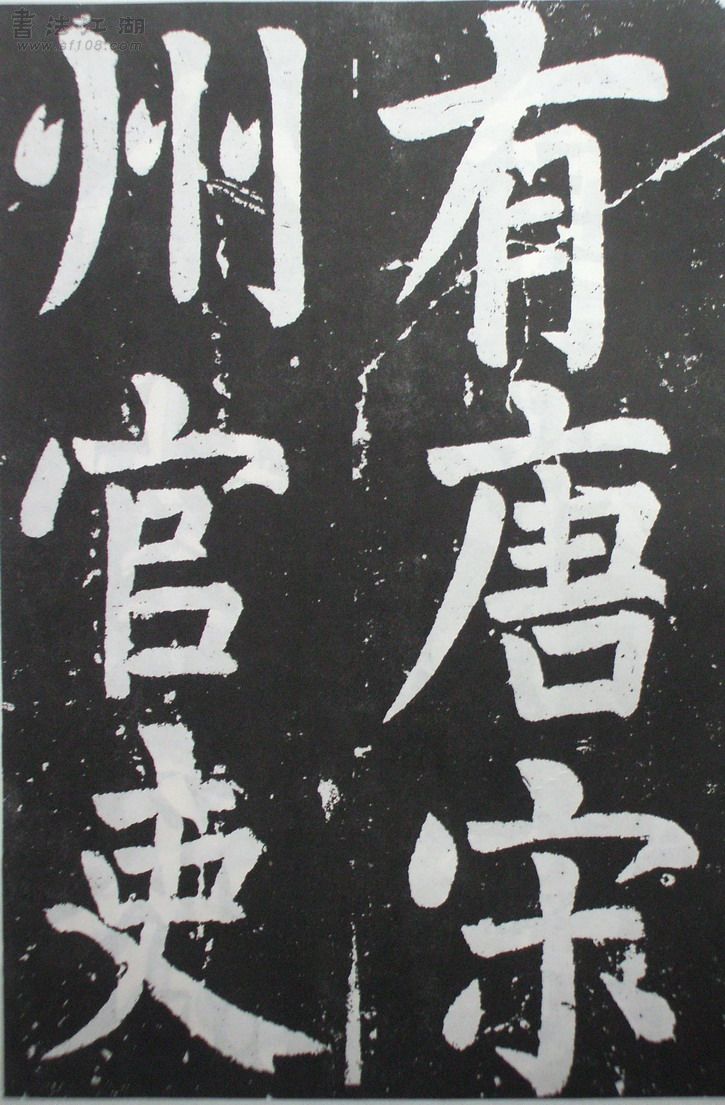 有唐宋
州官吏
書法江湖
www.sf108.com